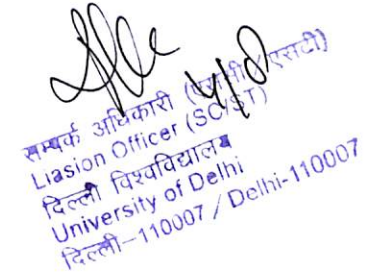 सम्पर्क अधिकारी (एससी/एसटी)
Liasion Officer (SC/ST)
दिल्ली विश्वविद्यालय
University of Delhi
दिल्ली-110007 / Delhi-110007